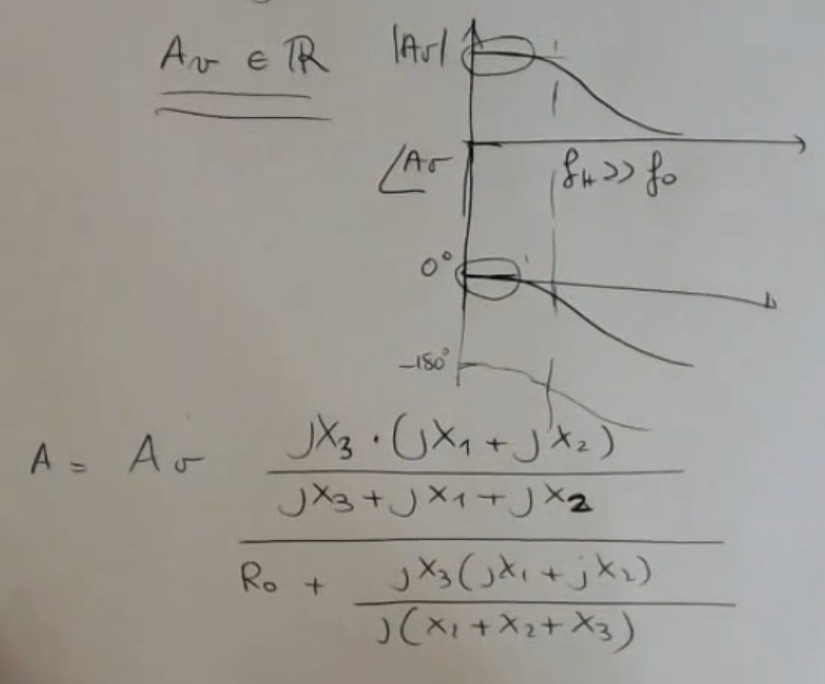 Av ∈ ℝ
|Av|
∠Av
fH >> fo
0°
-180°
A = Av
jX3 · (jX1 + jX2)
jX3 + jX1 + jX2
Ro + jX3(jX1 + jX2)
j(X1 + X2 + X3)